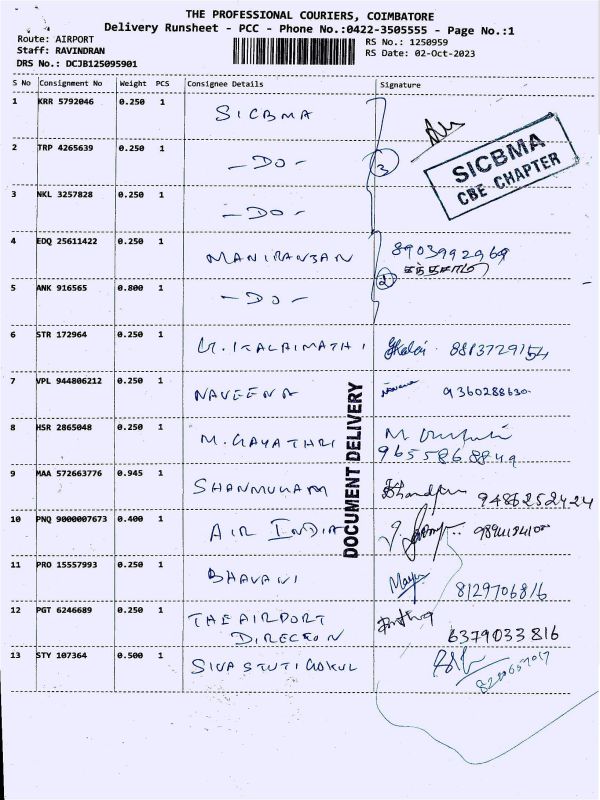 THE PROFESSIONAL COURIERS, COIMBATORE
Delivery Runsheet - PCC - Phone No.:0422-3505555 - Page No.:1
Route: AIRPORT
Staff: RAVINDRAN
DRS No.: DCJB125095901
RS No.: 1250959
RS Date: 02-Oct-2023
S No Consignment No Weight PCS Consignee Details Signature
1 KRR 5792046 0.250 1 SICBMA
SICBMA
CBE CHAPTER
2 TRP 4265639 0.250 1 -DO- 3
3 NKL 3257828 0.250 1 -DO-
4 EDQ 25611422 0.250 1 MANIRANJAN 8903992969
5 ANK 916565 0.800 1 -DO- 2
6 STR 172964 0.250 1 G.KALAIMATHI 8813729154
7 VPL 944806212 0.250 1 NAVEENA 9360288630
8 HSR 2865048 0.250 1 M.GAYATHRI
9655868849
9 MAA 572663776 0.945 1 SHANMUGAM 9486252424
10 PNQ 9000007673 0.400 1 AIR INDIA
11 PRO 15557993 0.250 1 BHAVANI 8129706816
12 PGT 6246689 0.250 1 THE AIRPORT
DIRECTOR 6379033816
13 STY 107364 0.500 1 SIVA STUTI GOKUL
DOCUMENT DELIVERY